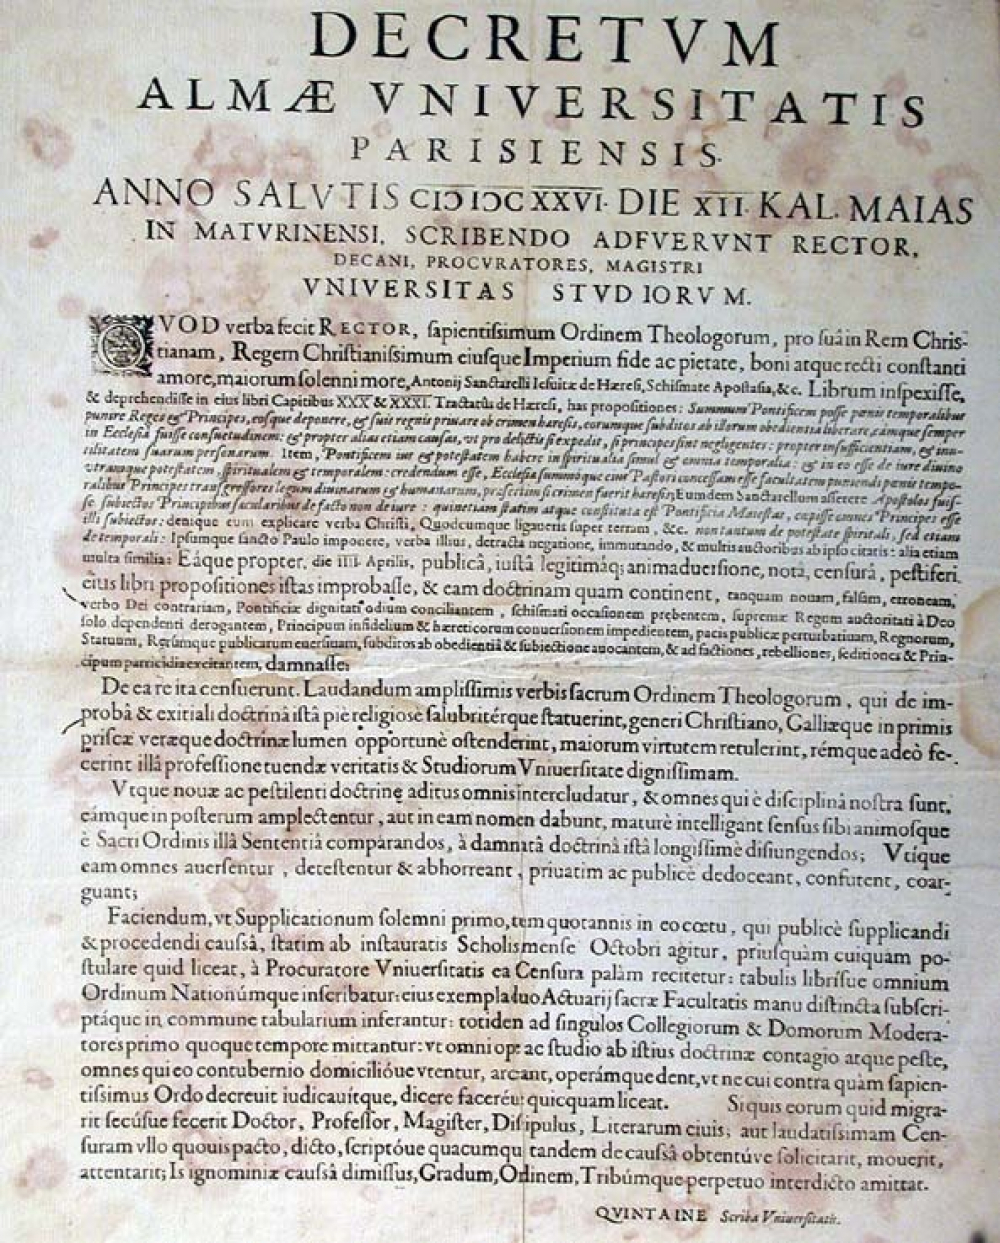 DECRETVM
ALMÆ VNIVERSITATIS
PARISIENSIS.
ANNO SALVTIS CIƆ IƆC XXVI. DIE XII. KAL. MAIAS
IN MATVRINENSI, SCRIBENDO ADFVERVNT RECTOR,
DECANI, PROCVRATORES, MAGISTRI
VNIVERSITAS STVDIORVM.
QVOD verba fecit RECTOR, sapientissimum Ordinem Theologorum, pro suâ in Rem Chris-
tianam, Regem Christianissimum eiusque Imperium fide ac pietate, boni atque recti constanti
amore, maiorum solenni more, Antonij Sanctarelli Iesuitæ de Hæresi, Schismate Apostasia, &c. Librum inspexisse,
& deprehendisse in eius libri Capitibus XXX & XXXI. Tractatûs de Hæresi, has propositiones: Summum Pontificem posse pœnis temporalibus
punire Reges & Principes, eosque deponere, & suis regnis priuare ob crimen hæresis, eorumque subditos ab illorum obedientia liberare, eamque semper
in Ecclesiâ fuisse consuetudinem: & propter alias etiam causas, vt pro delictis si expedit, si principes sint negligentes: propter insufficientiam, & inu-
tilitatem suarum personarum. Item, Pontificem ius & potestatem habere in spiritualia simul & omnia temporalia: & in eo esse de iure diuino
vtramque potestatem, spiritualem & temporalem: credendum esse, Ecclesiæ summóque eius Pastori concessam esse facultatem puniendi pœnis tempo-
ralibus Principes transgressores legum diuinarum & humanarum, præsertim si crimen fuerit hæresis; Eumdem Sanctarellum asserere Apostolos fuis-
se subiectos Principibus sæcularibus de facto non de iure: quinetiam statim atque constituta est Pontificia Maiestas, cœpisse omnes Principes esse
illi subiectos: denique eum explicare verba Christi, Quodcumque ligaueris super terram, &c. non tantum de potestate spirituali, sed etiam
de temporali: Ipsumque sancto Paulo imponere, verba illius, detracta negatione, immutando, & multis auctoribus ab ipso citatis: alia etiam
multa similia: Eâque propter, die IIII Aprilis, publicâ, iustâ legitimâq; animaduersione, notâ, censurâ, pestiferi
eius libri propositiones istas improbasse, & eam doctrinam quam continent, tanquam nouam, falsam, erroneam,
verbo Dei contrariam, Pontificiæ dignitati odium conciliantem, schismati occasionem præbentem, supremæ Regum auctoritati à Deo
solo dependenti derogantem, Principum infidelium & hæreticorum conuersionem impedientem, pacis publicæ perturbatiuam, Regnorum,
Statuum, Rerúmque publicarum euersiuam, subditos ab obedientiâ & subiectione auocantem, & ad factiones, rebelliones, seditiones & Prin-
cipum parricidia excitantem, damnasse;
De ea re ita censuerunt. Laudandum amplissimis verbis sacrum Ordinem Theologorum, qui de im-
probâ & exitiali doctrinâ istâ piè religiosè salubritérque statuerint, generi Christiano, Galliæque in primis
priscæ veræque doctrinæ lumen opportunè ostenderint, maiorum virtutem retulerint, rémque adeò fe-
cerint illâ professione tuendæ veritatis & Studiorum Vniuersitate dignissimam.
Vtque nouæ ac pestilenti doctrinę aditus omnis intercludatur, & omnes qui è disciplinâ nostra sunt,
eámque in posterum amplectentur, aut in eam nomen dabunt, maturè intelligant sensus sibi animosque
è Sacri Ordinis illâ Sententiâ comparandos, à damnatâ doctrinâ istâ longissimè disiungendos; Vtique
eam omnes auersentur, detestentur & abhorreant, priuatim ac publicè dedoceant, confutent, coar-
guant;
Faciendum, vt Supplicationum solemni primo, tem quotannis in eo cœtu, qui publicè supplicandi
& procedendi caussâ, statim ab instauratis Scholis mense Octobri agitur, priusquàm cuiquam po-
stulare quid liceat, à Procuratore Vniuersitatis ea Censura palàm recitetur: tabulis librisue omnium
Ordinum Nationúmque inscribatur: eius exempla duo Actuarij sacræ Facultatis manu distincta subscri-
ptáque in commune tabularium inferantur: totiden ad singulos Collegiorum & Domorum Modera-
tores primo quoque tempore mittantur: vt omni ope ac studio ab istius doctrinæ contagio atque peste,
omnes qui eo contubernio domicilióue vtentur, arceant, operámque dent, vt ne cui contra quàm sapien-
tissimus Ordo decreuit iudicauitque, dicere facereue quicquam liceat. Si quis eorum quid migra-
rit secúsue fecerit Doctor, Professor, Magister, Discipulus, Literarum ciuis; aut laudatissimam Cen-
suram vllo quouis pacto, dicto, scriptóue quacumque tandem de caussâ obtentúve solicitarit, mouerit,
attentarit; Is ignominiæ caussâ dimissus, Gradum, Ordinem, Tribúmque perpetuo interdicto amittat.
QVINTAINE Scriba Vniuersitatis.